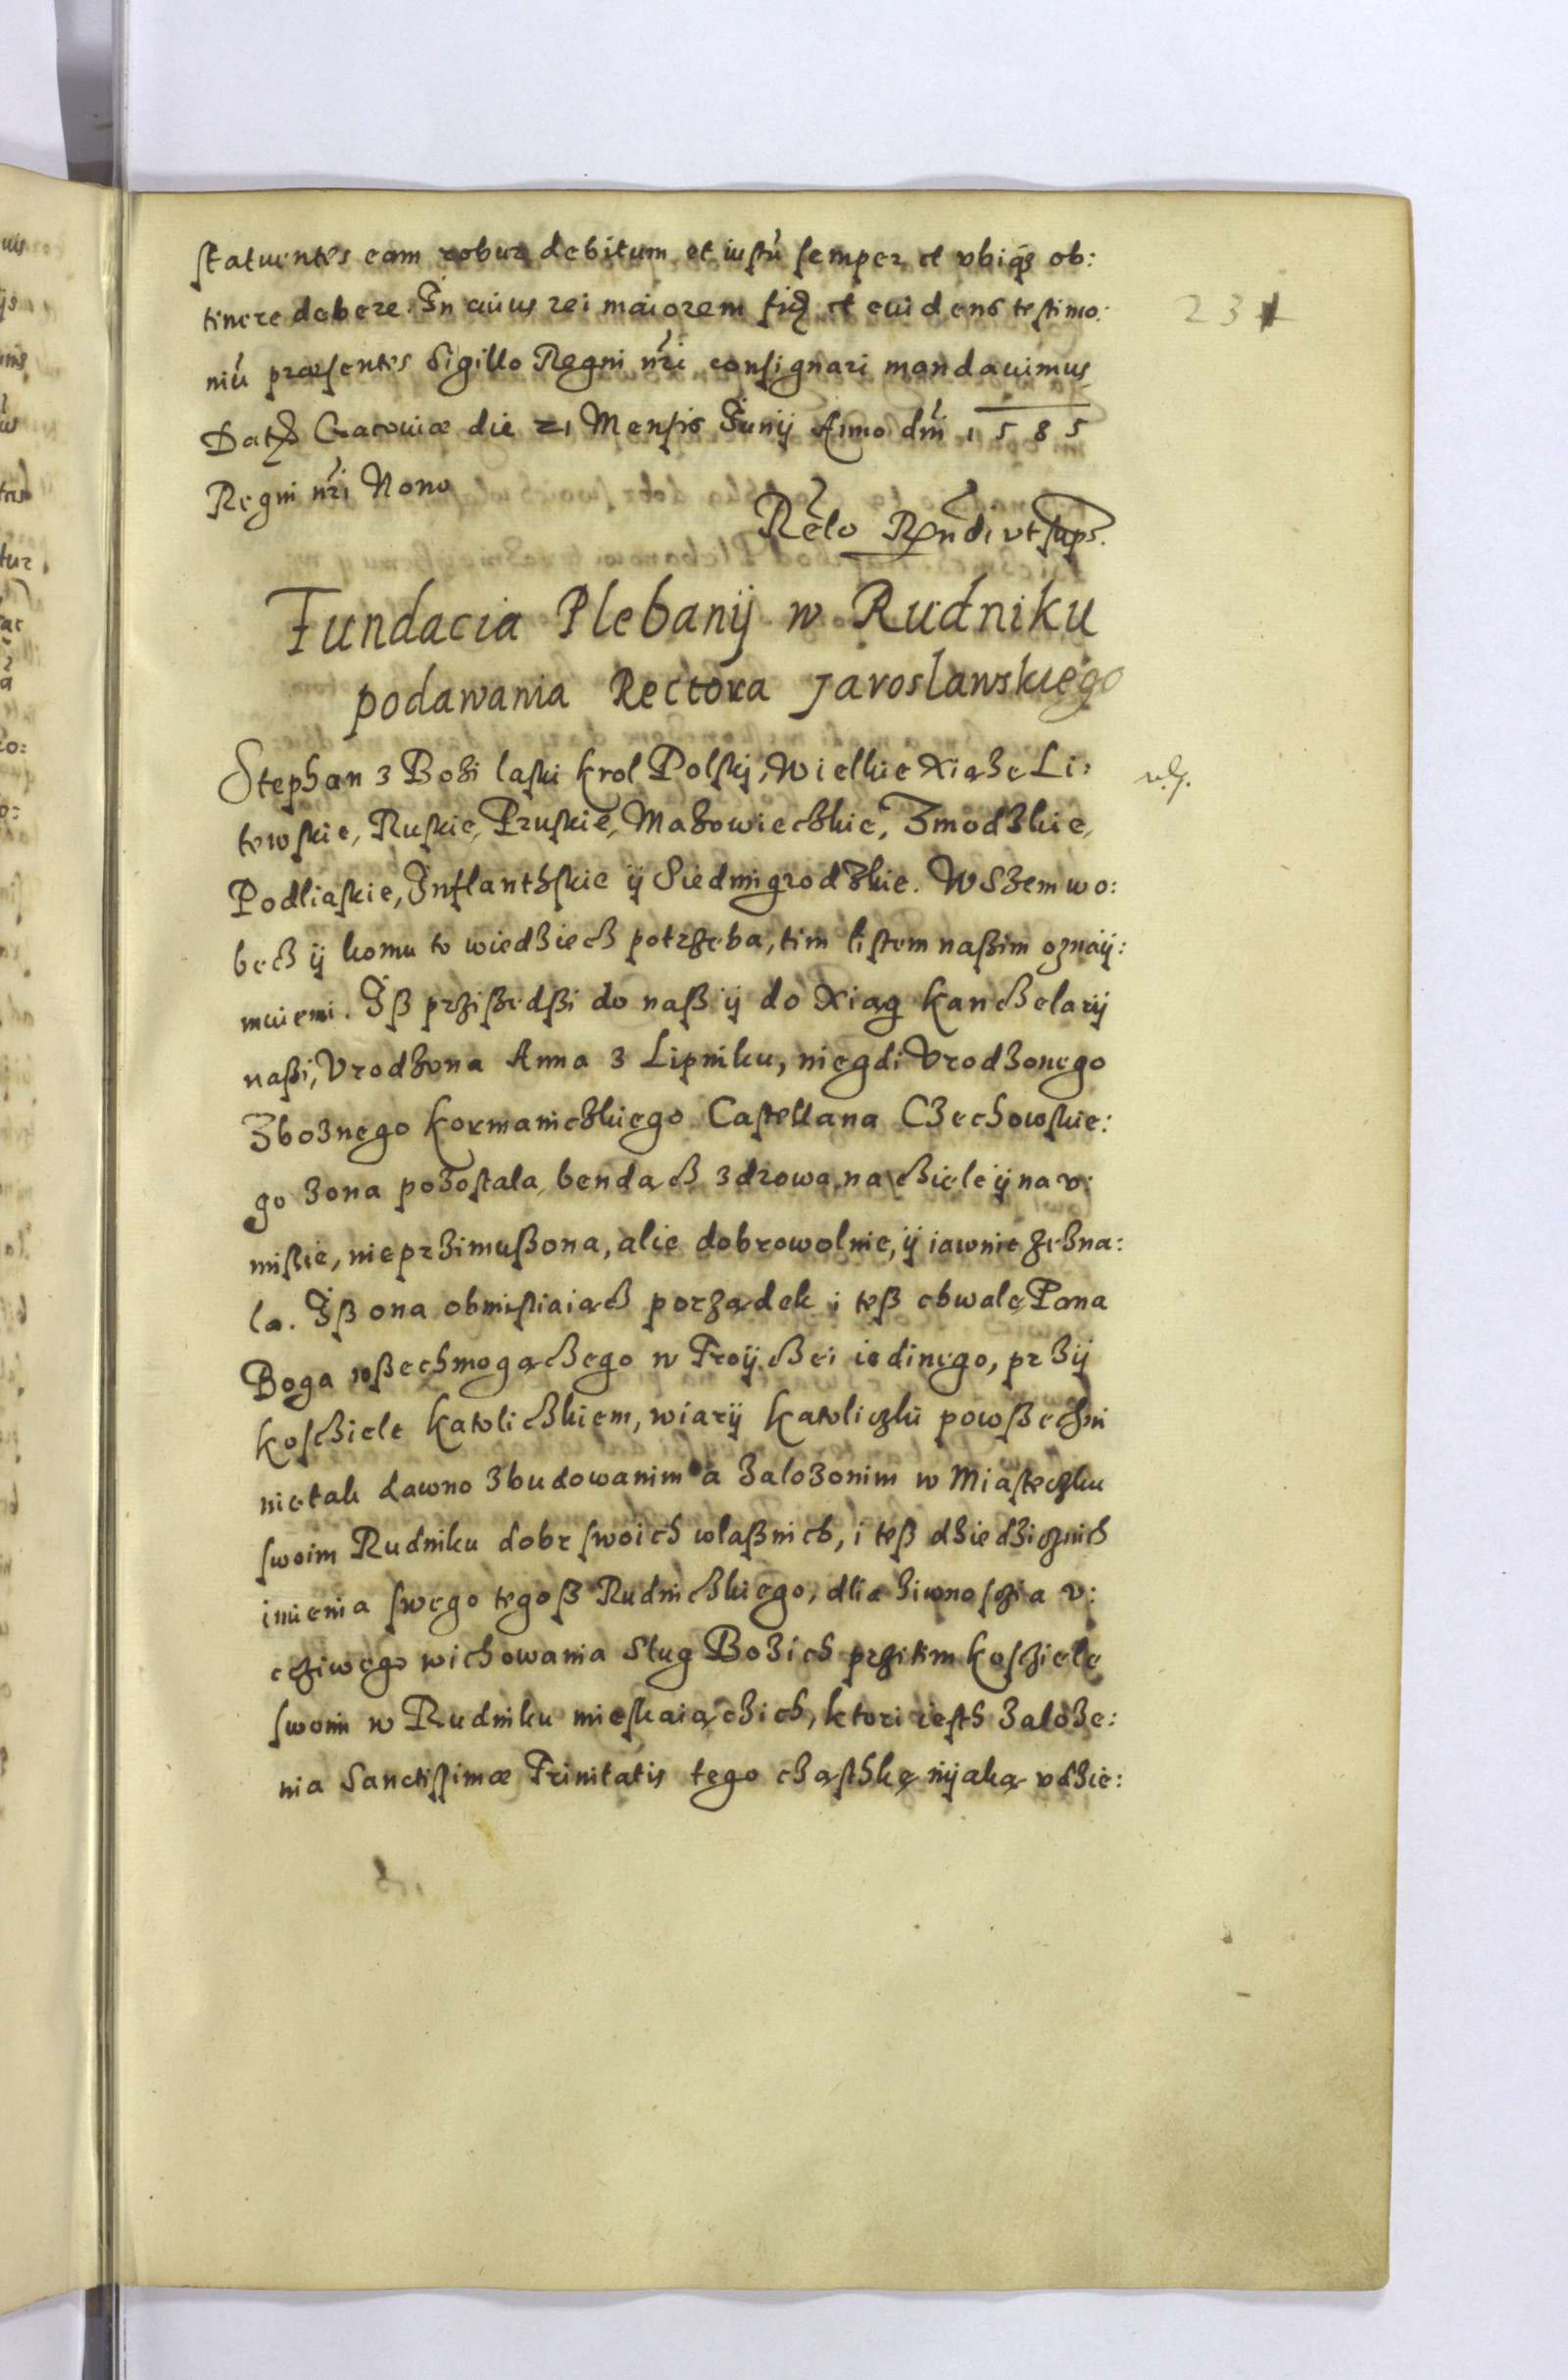 statuentes eam robur debitum et iustũ semper et vbiqȝ ob:
231
tinere debere. In cuius rei maiorem fid et euidens testimo:
niũ præsentes Sigillo Regni nr̃i consignari mandauimus
Dat Cracouiæ die 21 Mensis Junij Anno dni 1585
Regni nr̃i Nono
Relo Rndi vt sups.
Fundacia Plebanij w Rudniku
podawania Rectora Jaroslawskiego
Stephan z Bozi laski krol Polskj, Wielkie Xiąze Li:
tewskie, Ruskie, Pruskie, Mazowieczkie, Zmodzkie,
Podliaskie, Inflanthskie ij Siedmigrodzkie. WSzem wo:
becz ij komu to wiedziecz potrzeba, tim listem naszim oznaij:
muiemi. Isz prziszedszi do nasz ij do Xiąg kanczelarij
naszi, Vrodzona Anna z Lipniku, niegdi Vrodzonego
Zboznego kormaniczkiego Castellana Czechowskie:
go zona pozostala, bendącz zdrowa na cziele ij na v:
miszie, nieprzimuszona, alie dobrowolnie, ij iawnie zezna:
la. Isz ona obmisliaiącz porządek i tesz chwalę Pana
Boga wszechmogączego w Troijczei iedinego, przij
kosciele katoliczkiem, wiarij katoliczki powszechni
nie tak dawno zbudowanim a zalozonim w Miasteczku
swoim Rudniku dobr swoich wlasznich, i tesz dziedzicznich
imienia swego tegosz Rudniczkiego, dlia ziwnoscia v:
cziwego wichowania Slug Bozich przitim kosciele
swoim w Rudniku mieskaiączich, ktori iesth zaloze:
nia Sanctissimæ Trinitatis tego cząsthkę nijaką vdzie: